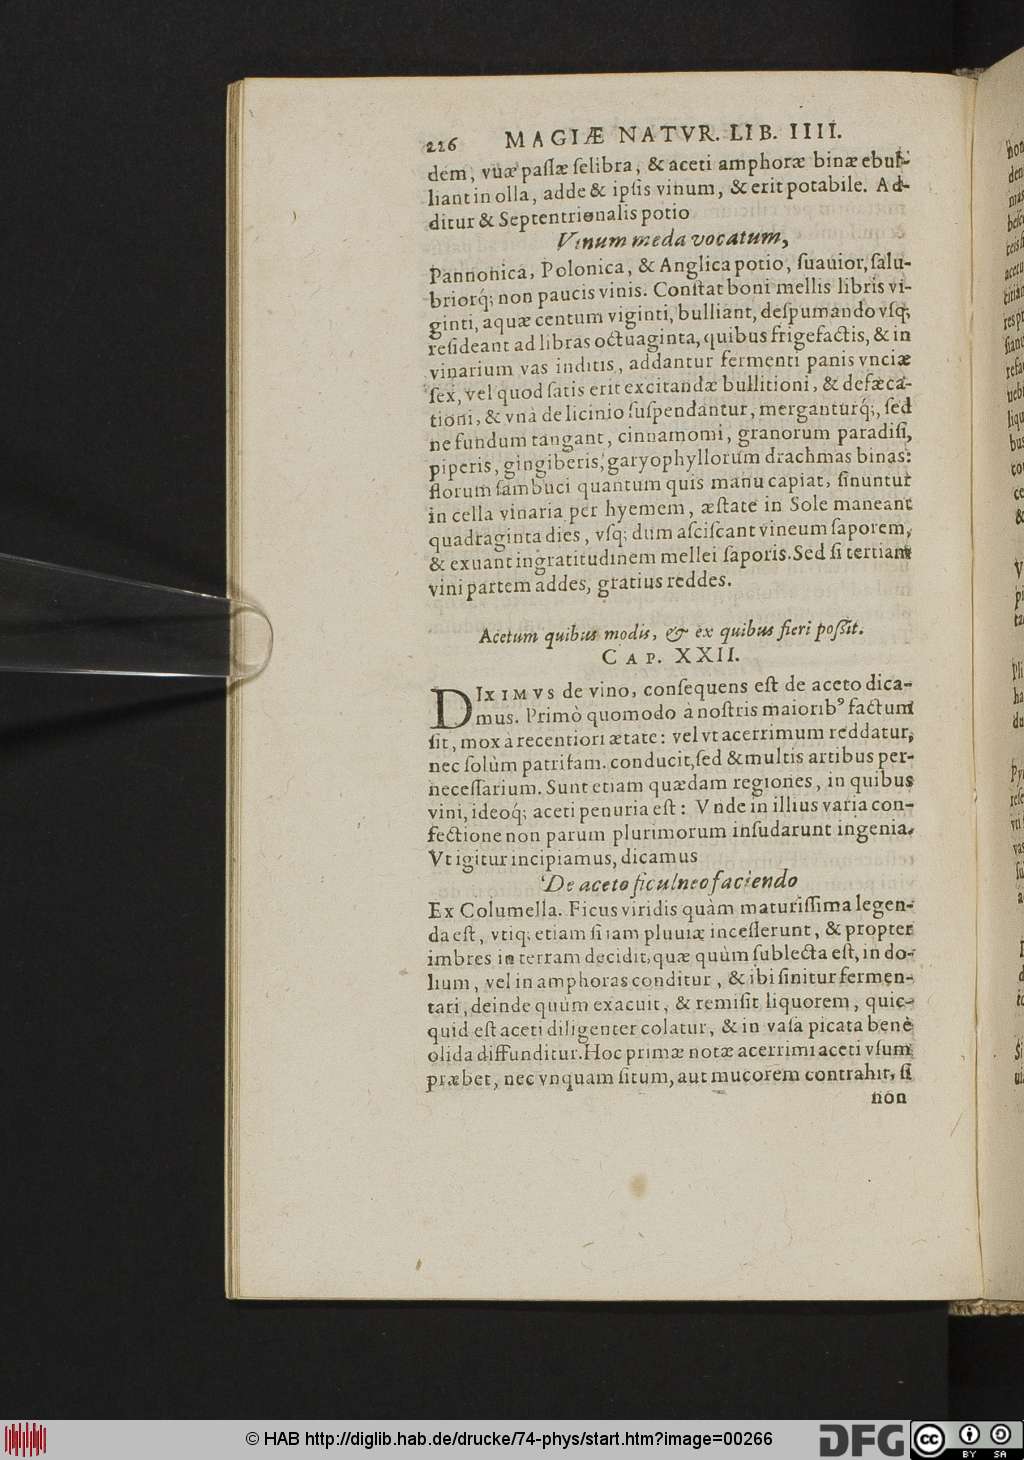 226 MAGIÆ NATVR. LIB. IIII.
dem, vuæ passæ selibra, & aceti amphoræ binæ ebul-
liant in olla, adde & ipsis vinum, & erit potabile. Ad-
ditur & Septentrionalis potio
Vinum meda vocatum,
Pannonica, Polonica, & Anglica potio, suauior, salu-
briorq́; non paucis vinis. Constat boni mellis libris vi-
ginti, aquæ centum viginti, bulliant, despumando vsq;
resideant ad libras octuaginta, quibus frigefactis, & in
vinarium vas inditis, addantur fermenti panis vnciæ
sex, vel quod satis erit excitandæ bullitioni, & defæca-
tioni, & vnà de licinio suspendantur, merganturq́;, sed
ne fundum tangant, cinnamomi, granorum paradisi,
piperis, gingiberis, garyophyllorum drachmas binas:
florum sambuci quantum quis manu capiat, sinuntur
in cella vinaria per hyemem, æstate in Sole maneant
quadraginta dies, vsq; dum asciscant vineum saporem,
& exuant ingratitudinem mellei saporis. Sed si tertiam
vini partem addes, gratius reddes.
Acetum quibus modis, & ex quibus fieri possit.
CAP. XXII.
DIXIMVS de vino, consequens est de aceto dica-
mus. Primò quomodo à nostris maiorib⁹ factum
sit, mox à recentiori ætate: vel vt acerrimum reddatur,
nec solùm patrifam. conducit, sed & multis artibus per-
necessarium. Sunt etiam quædam regiones, in quibus
vini, ideoq́; aceti penuria est: Vnde in illius varia con-
fectione non parum plurimorum insudarunt ingenia.
Vt igitur incipiamus, dicamus
De aceto ficulneo faciendo
Ex Columella. Ficus viridis quàm maturissima legen-
da est, vtiq; etiam si iam pluuiæ incesserunt, & propter
imbres in terram decidit, quæ quùm sublecta est, in do-
lium, vel in amphoras conditur, & ibi sinitur fermen-
tari, deinde quùm exacuit, & remisit liquorem, quic-
quid est aceti diligenter colatur, & in vasa picata benè
olida diffunditur. Hoc primæ notæ acerrimi aceti vsum
præbet, nec vnquam situm, aut mucorem contrahit, si
non
© HAB http://diglib.hab.de/drucke/74-phys/start.htm?image=00266
DFG
cc BY SA